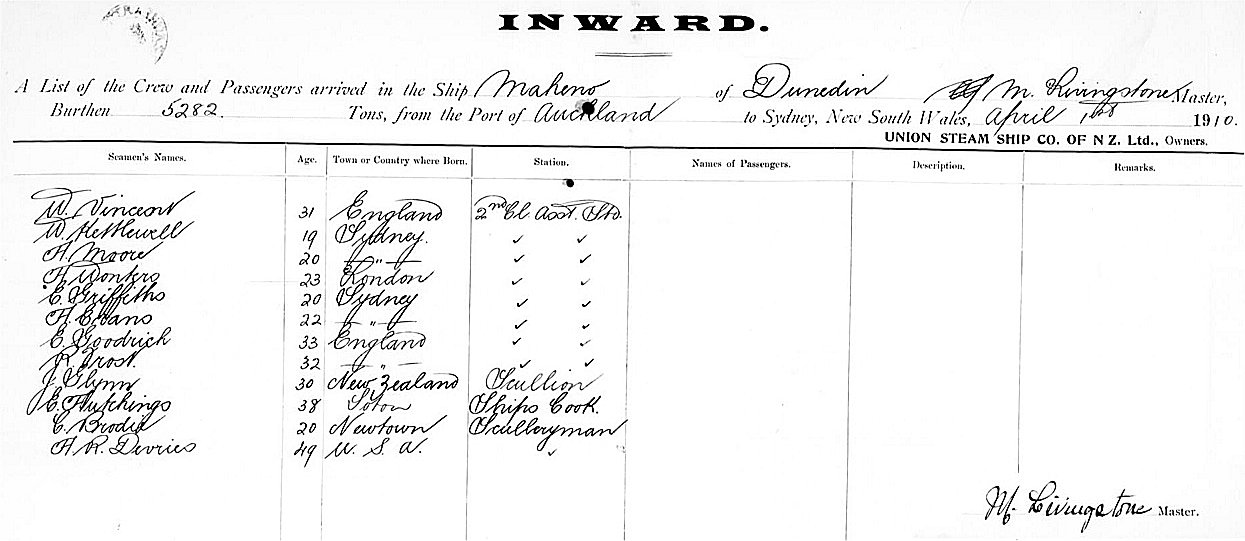 INWARD.
A List of the Crew and Passengers arrived in the Ship Makeno of Dunedin M. Livingstone Master,
Burthen 5282. Tons, from the Port of Auckland to Sydney, New South Wales, April 1st 1910.
UNION STEAM SHIP CO. OF N Z. Ltd., Owners.
Seamen's Names. Age. Town or Country where Born. Station. Names of Passengers. Description. Remarks.
W. Vincent 31 England 2nd Cl. Asst. Std.
W. Hetklewell 19 Sydney. ✓ ✓
H. Moore 20 — " — ✓ ✓
H. Wonters 23 London ✓ ✓
E. Griffiths 20 Sydney ✓ ✓
H. Evans 22 — " — ✓ ✓
E. Goodrich 33 England ✓ ✓
R. Frost. 32 — " — ✓ ✓
J. Glynn 30 New Zealand Scullion
E. Hutchings 38 Soton Ships Cook.
C. Brodie 20 Newtown Sculleryman
H. R. Devries 49 U. S. A. ✓
M. Livingstone Master.